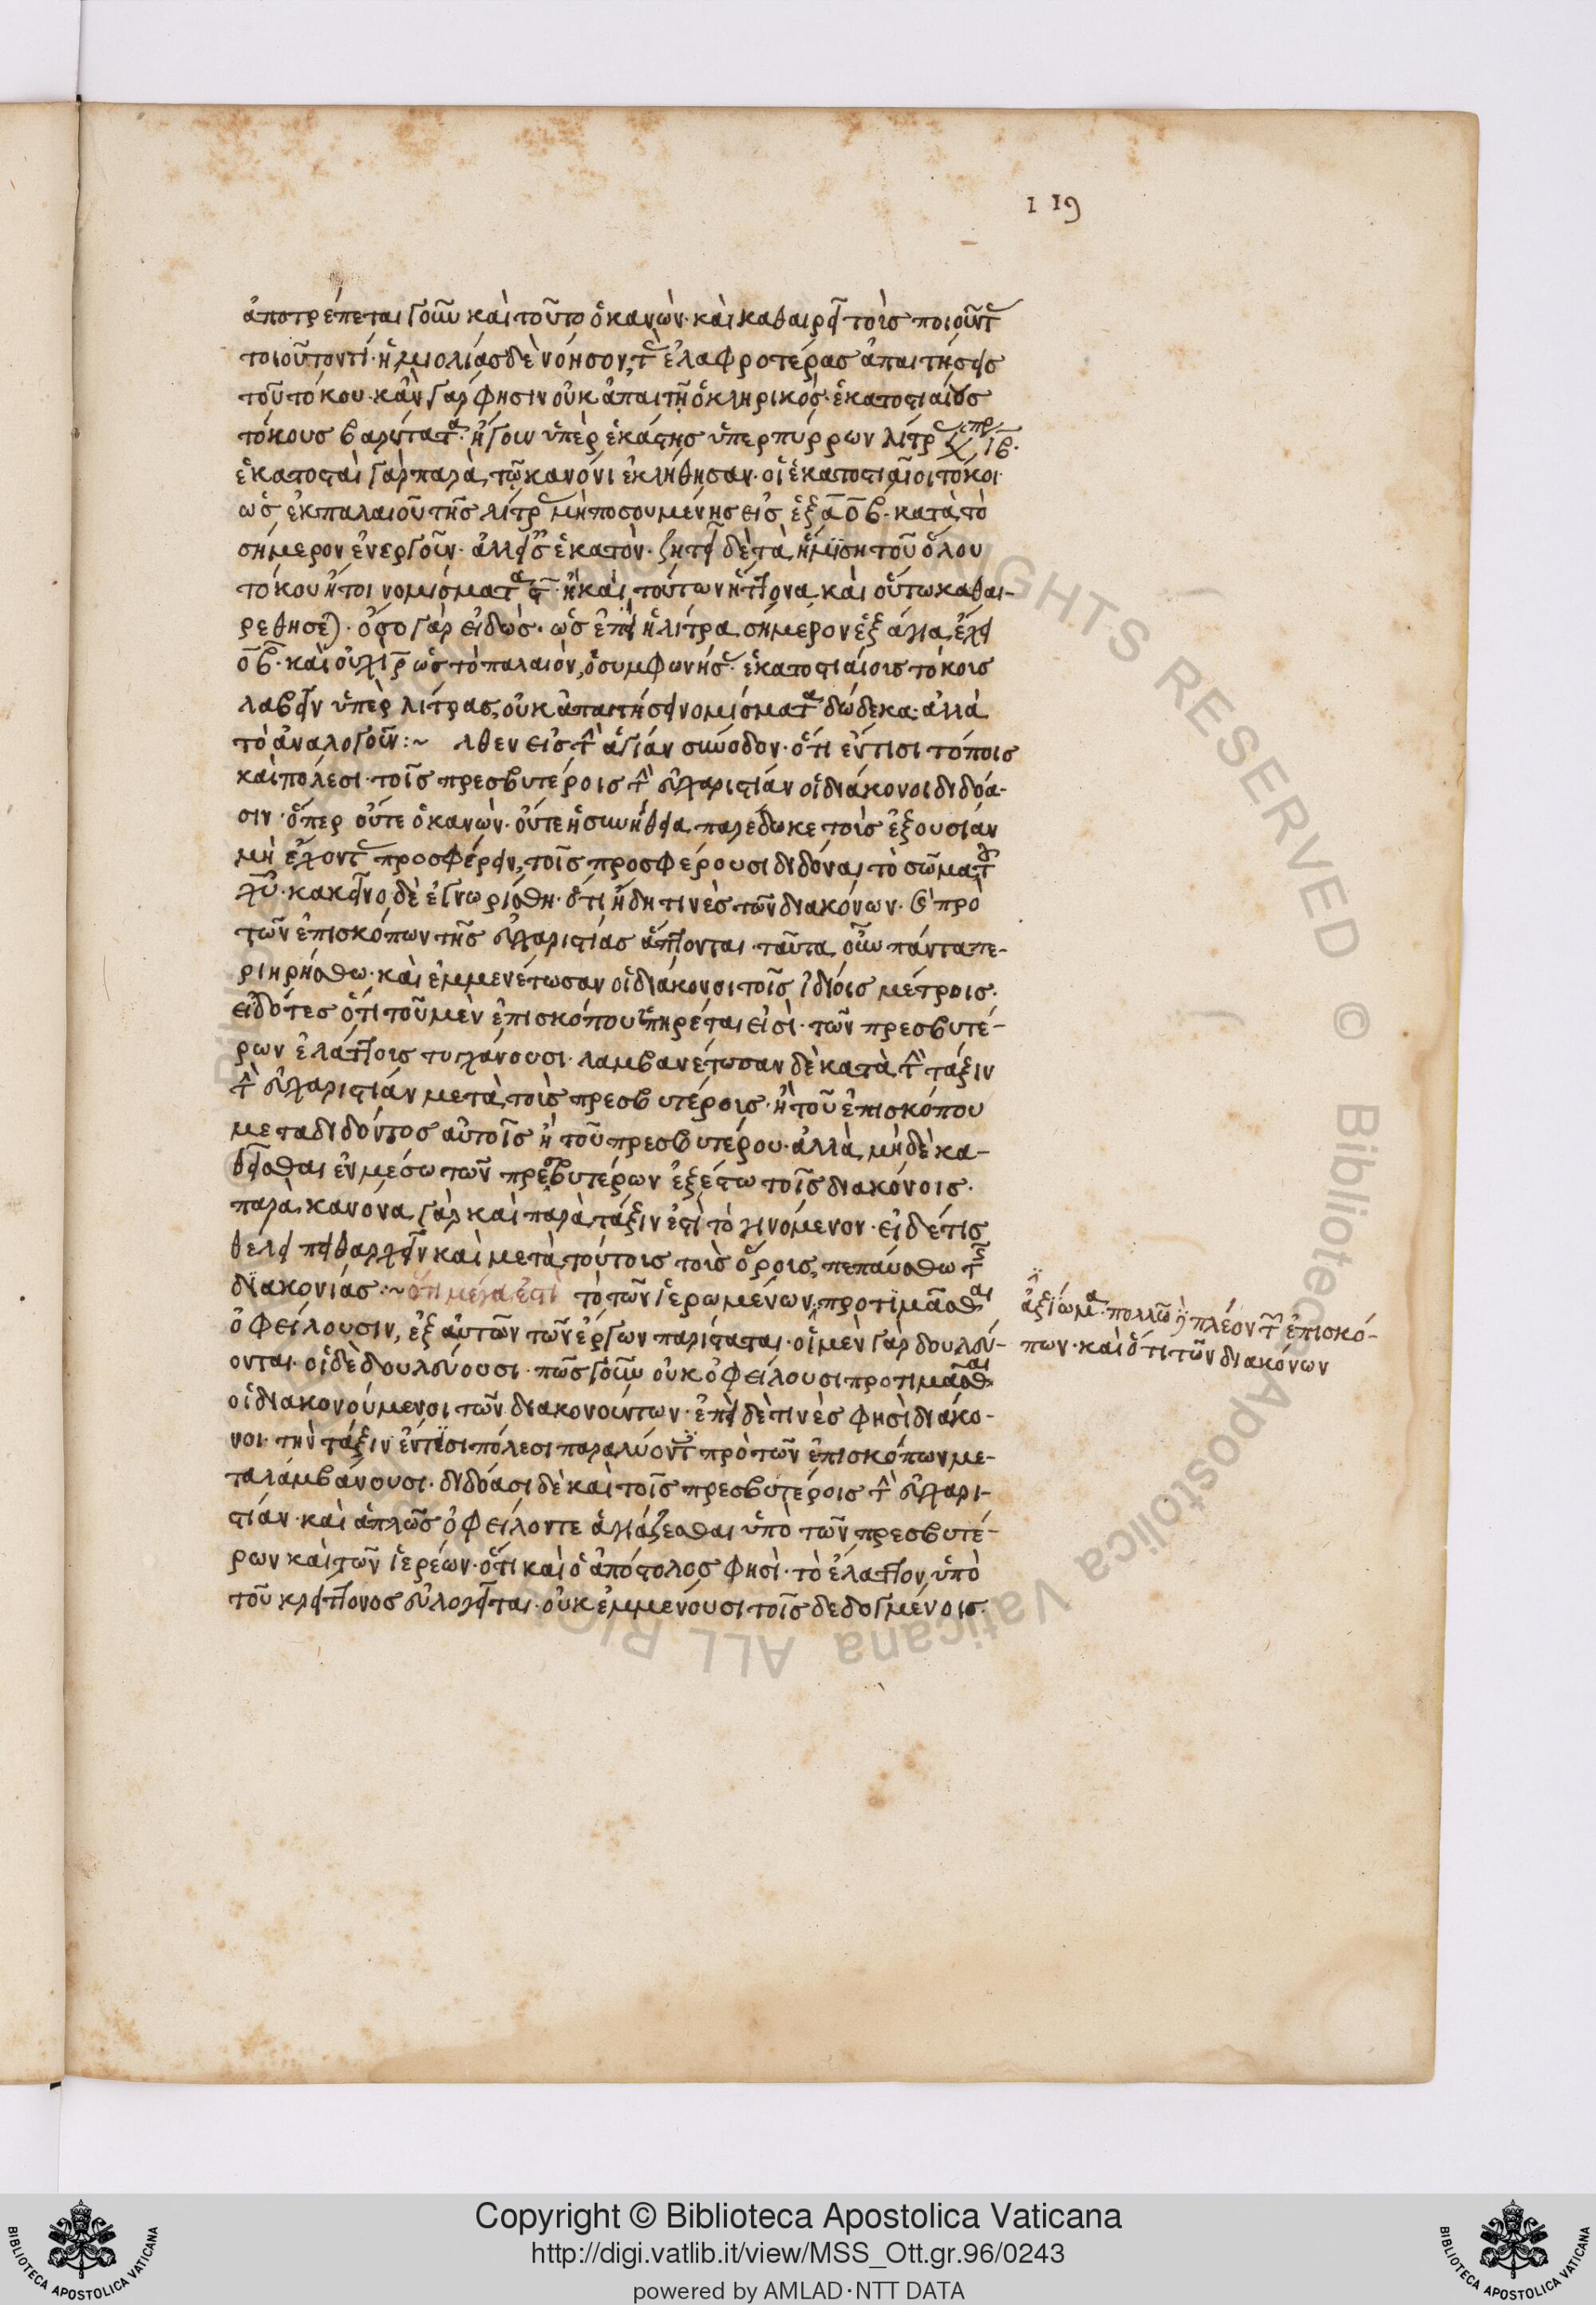 119
ἀποτρέπεται γοῦν καὶ τοῦτο ὁ κανών· καὶ καθαιρεῖ τοὺς ποιοῦντ
τοιοῦτοντί· ἡμιολίας δὲ νόησον, τὰς ἐλαφροτέρας ἀπαιτήσεις
τοῦ τόκου· κἂν γάρ φησιν οὐκ ἀπαιτῇ ὁ κληρικὸς ἑκατοστιαίους
τόκους βαρυτάτ· ἤγουν ὑπὲρ ἑκάστης ὑπερπύρρων λίτρ ιβ·
ἑκατοσταὶ γὰρ παρὰ τῷ κανόνι ἐκλήθησαν οἱ ἑκατοστιαῖοι τόκοι·
ὡς ἐκ παλαιοῦ τῆς λίτρ μὴ ποσουμένης εἰς ἑξά οβ· κατὰ τὸ
σήμερον ἐνεργοῦν· ἀλλ' εἰς ἑκατόν· ζητεῖ δὲ τὰ ἡμίση τοῦ ὅλου
τόκου ἤτοι νομίσματ ϛ· ἢ καὶ τούτων ἥττονα καὶ οὕτω καθαι-
ρεθήσε· ὅσο γὰρ εἰδὼς· ὡς ἐπεὶ ἡ λίτρα σήμερον ἑξάγια ἔχει
οβ· καὶ οὐχὶ ρ ὡς τὸ παλαιόν, ὁ συμφωνήσ ἑκατοστιαίους τόκους
λαβεῖν ὑπὲρ λίτρας, οὐκ ἀπαιτήσει νομίσματ δώδεκα· ἀλλὰ
τὸ ἀναλογοῦν :~ λθεν εἰς τὴν ἁγίαν σύνοδον· ὅτι ἔν τισι τόποις
καὶ πόλεσι· τοῖς πρεσβυτέροις τὴν εὐχαριστίαν οἱ διάκονοι διδόα-
σιν· ὅπερ οὔτε ὁ κανών· οὔτε ἡ συνήθεια παρέδωκε τοὺς ἐξουσίαν
μὴ ἔχοντ προσφέρειν, τοῖς προσφέρουσι διδόναι τὸ σῶμα τ
χυ· κακεῖνο δὲ ἐγνωρίσθη· ὅτι ἤδη τινὲς τῶν διακόνων· καὶ πρὸ
τῶν ἐπισκόπων τῆς εὐχαριστίας ἅπτονται· ταῦτα οὖν πάντα πε-
ριηρήσθω· καὶ ἐμμενέτωσαν οἱ διάκονοι τοῖς ἰδίοις μέτροις·
εἰδότες ὅτι τοῦ μὲν ἐπισκόπου ὑπηρέται εἰσὶ· τῶν πρεσβυτέ-
ρων ἐλάττους τυγχάνουσι· λαμβανέτωσαν δὲ κατὰ τὴν τάξιν
τὴν εὐχαριστίαν μετὰ τοὺς πρεσβυτέρους· ἢ τοῦ ἐπισκόπου
μεταδιδόντος αὐτοῖς ἢ τοῦ πρεσβυτέρου· ἀλλὰ μὴ δὲ κα-
θῆσθαι ἐν μέσω τῶν πρεσβυτέρων ἐξέστω τοῖς διακόνοις·
παρὰ κανόνα γὰρ καὶ παρὰ τάξιν ἐστὶ τὸ γινόμενον· εἰ δέ τις
θέλει πειθαρχεῖν καὶ μετὰ τούτους τοὺς ὅρους, πεπαύσθω τῆς
διακονίας :~ ὅτι μέγα ἐστὶ τὸ τῶν ἱερωμένων προτιμᾶσθαι
ὀφείλουσιν, ἐξ αὐτῶν τῶν ἔργων παρίσταται· οἱ μὲν γὰρ δουλεύ-
ονται· οἱ δὲ δουλεύουσι· πῶς γοῦν οὐκ ὀφείλουσι προτιμᾶσθαι
οἱ διακονούμενοι τῶν διακονούντων· ἐπεὶ δὲ τινὲς φησὶ διάκο-
νοι τὴν τάξιν ἔν τισι πόλεσι παραλύοντ πρὸ τῶν ἐπισκόπων με-
ταλαμβάνουσι· διδόασι δὲ καὶ τοῖς πρεσβυτέροις τὴν εὐχαρι-
στίαν· καὶ ἁπλῶς ὀφείλοντε ἁγιάζεσθαι ὑπὸ τῶν πρεσβυτέ-
ρων καὶ τῶν ἱερέων· ὅτι καὶ ὁ ἀπόστολος φησὶ· τὸ ἔλαττον, ὑπὸ
τοῦ κρείττονος εὐλογεῖται· οὐκ ἐμμένουσι τοῖς δεδογμένοις.
ἀξίωμα· πολλῶ πλέον τῶν ἐπισκό-
πων· καὶ ὅτι τῶν διακόνων
Copyright © Biblioteca Apostolica Vaticana
http://digi.vatlib.it/view/MSS_Ott.gr.96/0243
powered by AMLAD·NTT DATA
BIBLIOTECA APOSTOLICA VATICANA
BIBLIOTECA APOSTOLICA VATICANA
© Biblioteca Apostolica Vaticana ALL RIGHTS RESERVED